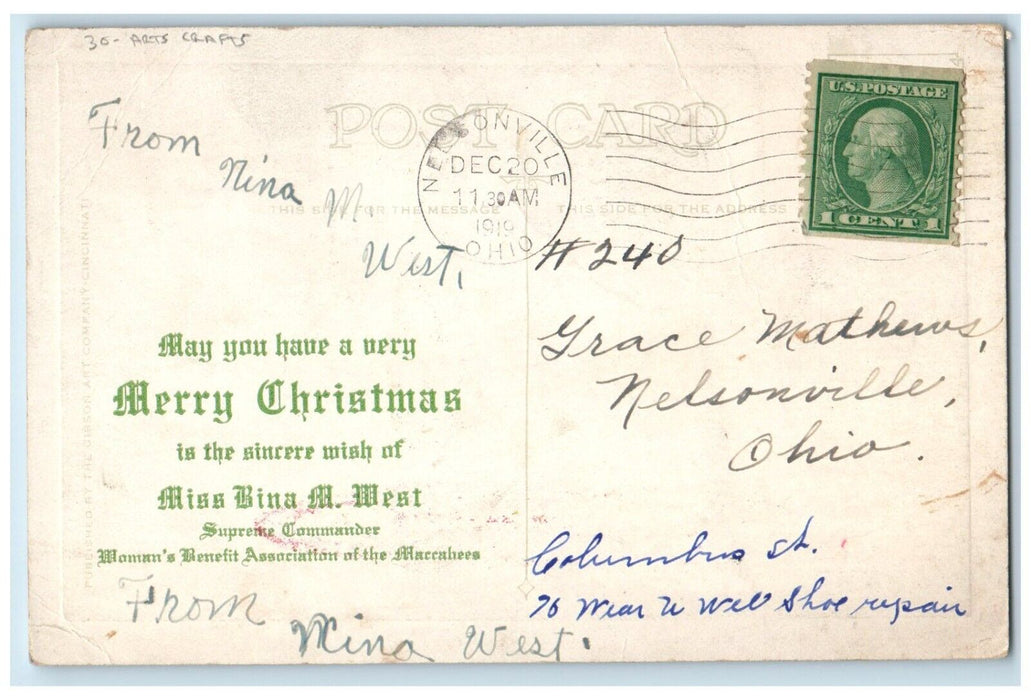 30- ARTS CRAFTS
POST CARD
U.S. POSTAGE
1 CENT 1
NELSONVILLE
DEC 20
11.30 AM
1919
OHIO
From
Nina M.
West,
THIS SIDE FOR THE MESSAGE
THIS SIDE FOR THE ADDRESS
#240
Grace Mathews,
Nelsonville,
Ohio.
May you have a very
Merry Christmas
is the sincere wish of
Miss Bina M. West
Supreme Commander
Woman's Benefit Association of the Maccabees
PUBLISHED BY THE GIBSON ART COMPANY, CINCINNATI
Columbus st.
76 Wear U Well Shoe repair
From
Mina West.